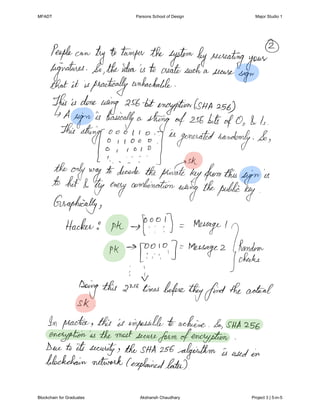 MFADT Parsons School of Design Major Studio 1
2
People can try to tamper the system by recreating your
signatures. So, the idea is to create such a secure sign
that it is practically unhackable.
This is done using 256 bit encryption (SHA 256)
↳ A sign is basically a string of 256 bits of 0, & 1.
This string [0 0 0 1 1 0 . .] is generated randomly. So,
0 1 1 0 0 0
0 , 1 0 1 0
1 . . . . .
sk
the only way to decode the private key from this sign is
to hit & try every combination using the public key.
Graphically,
Hacker : pk → [0001] = Message 1
pk → [0010] = Message 2 } Random
checks
Doing this 2²⁵⁶ times before they find the actual
sk
In practice, this is impossible to achieve. So, SHA 256
encryption is the most secure form of encryption.
Due to its security, the SHA 256 algorithm is used in
blockchain network (explained later)
Blockchain for Graduates Akshansh Chaudhary Project 3 | 5-in-5